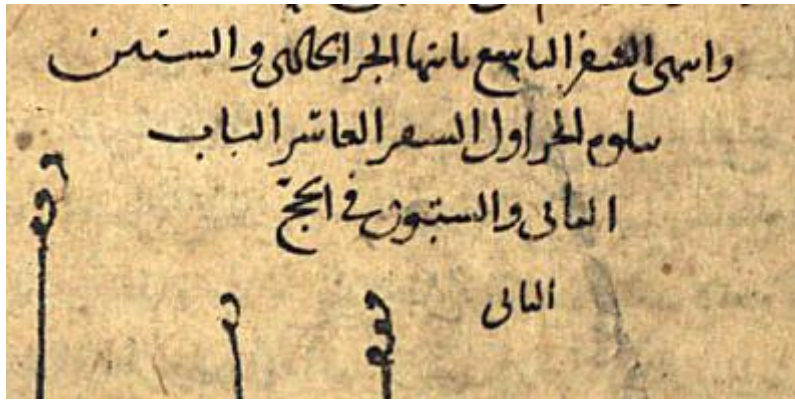 وانتهى السفر التاسع بانتهاء الجزء الحادى والستين
يتلوه الجزء اول السفر العاشر الباب
الثانى والسبعون فى الحج
الثانى